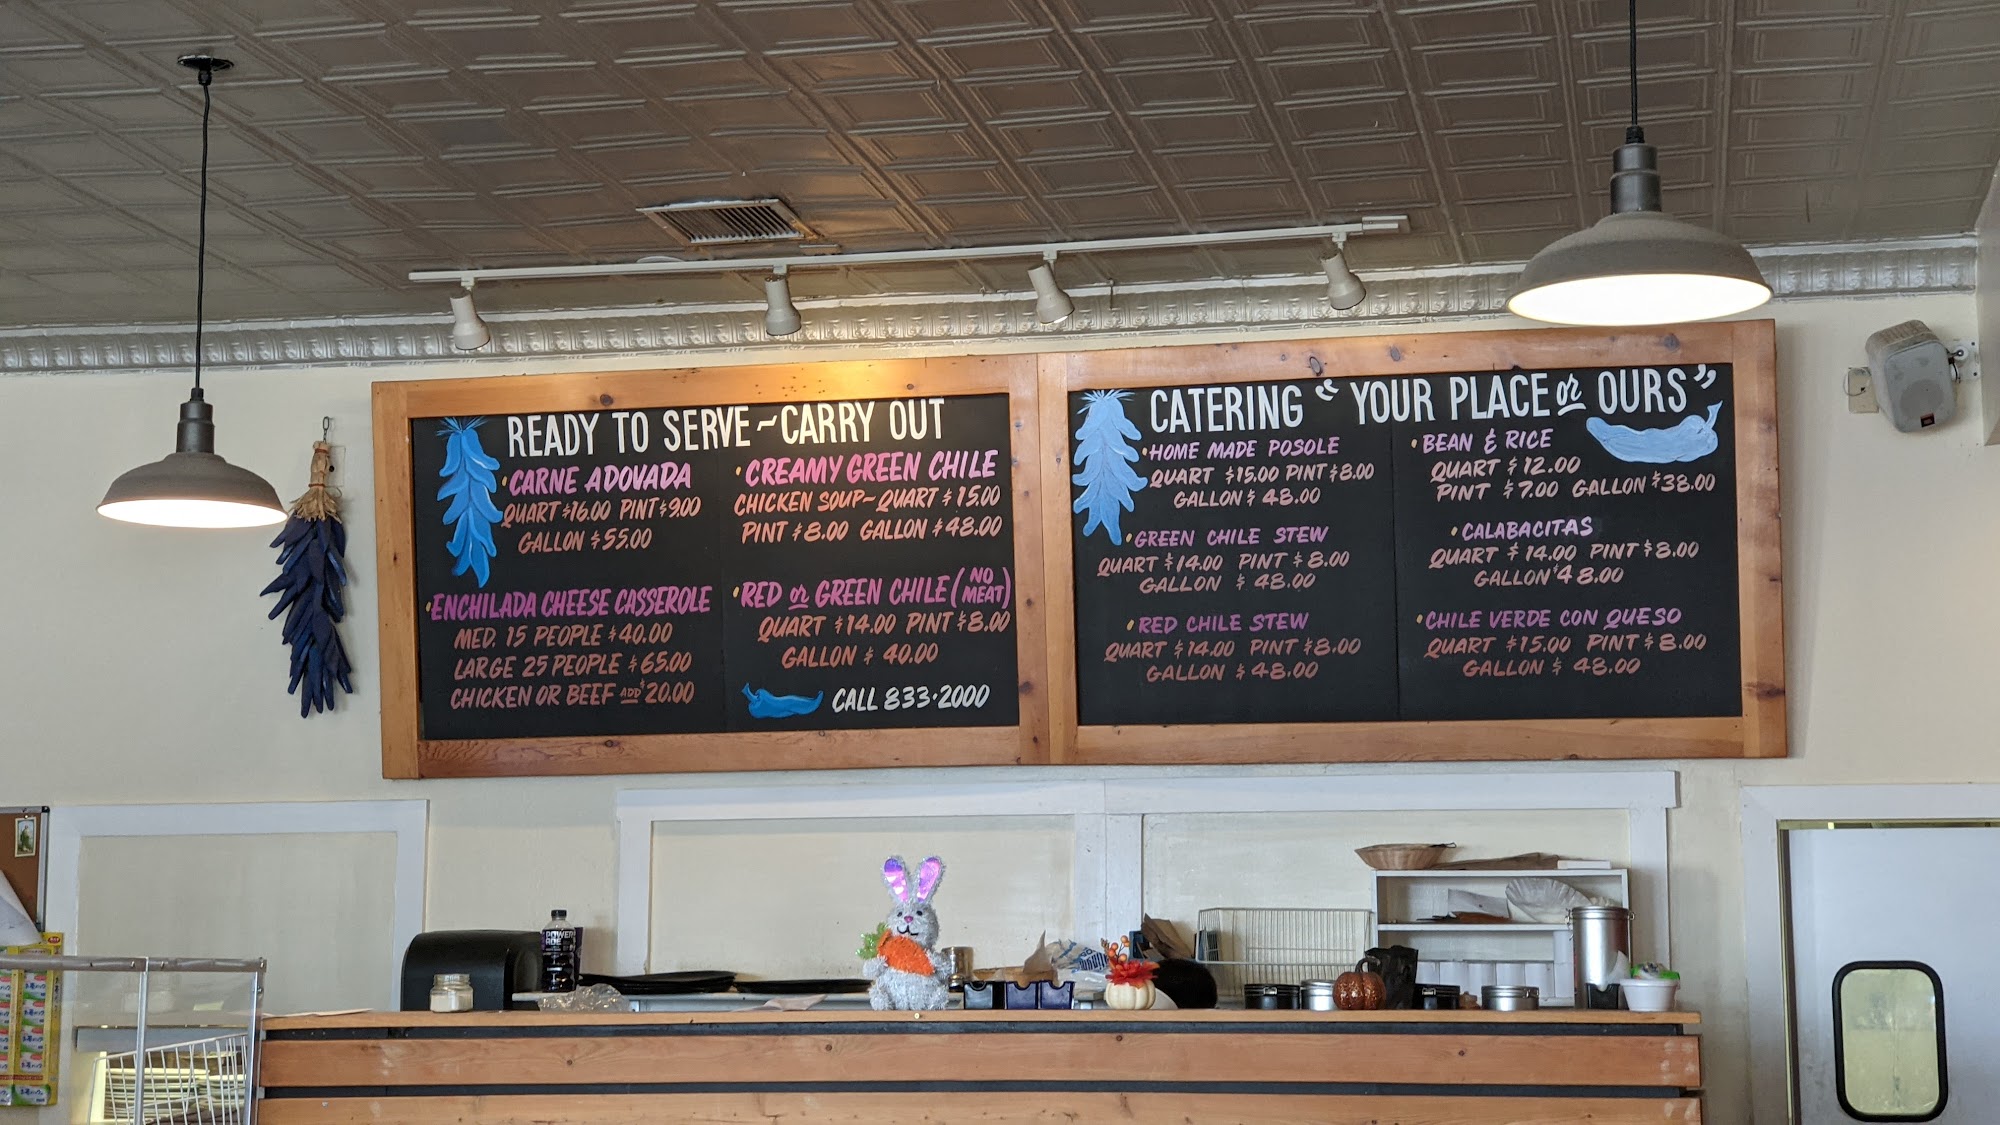 READY TO SERVE ~ CARRY OUT
• CARNE ADOVADA
QUART $16.00 PINT $9.00
GALLON $55.00
• ENCHILADA CHEESE CASSEROLE
MED. 15 PEOPLE $40.00
LARGE 25 PEOPLE $65.00
CHICKEN OR BEEF ADD $20.00
• CREAMY GREEN CHILE
CHICKEN SOUP~ QUART $15.00
PINT $8.00 GALLON $48.00
• RED or GREEN CHILE (NO MEAT)
QUART $14.00 PINT $8.00
GALLON $40.00
CALL 833·2000
CATERING “YOUR PLACE or OURS”
• HOME MADE POSOLE
QUART $15.00 PINT $8.00
GALLON $48.00
• GREEN CHILE STEW
QUART $14.00 PINT $8.00
GALLON $48.00
• RED CHILE STEW
QUART $14.00 PINT $8.00
GALLON $48.00
• BEAN & RICE
QUART $12.00
PINT $7.00 GALLON $38.00
• CALABACITAS
QUART $14.00 PINT $8.00
GALLON $48.00
• CHILE VERDE CON QUESO
QUART $15.00 PINT $8.00
GALLON $48.00
POWER
ADE